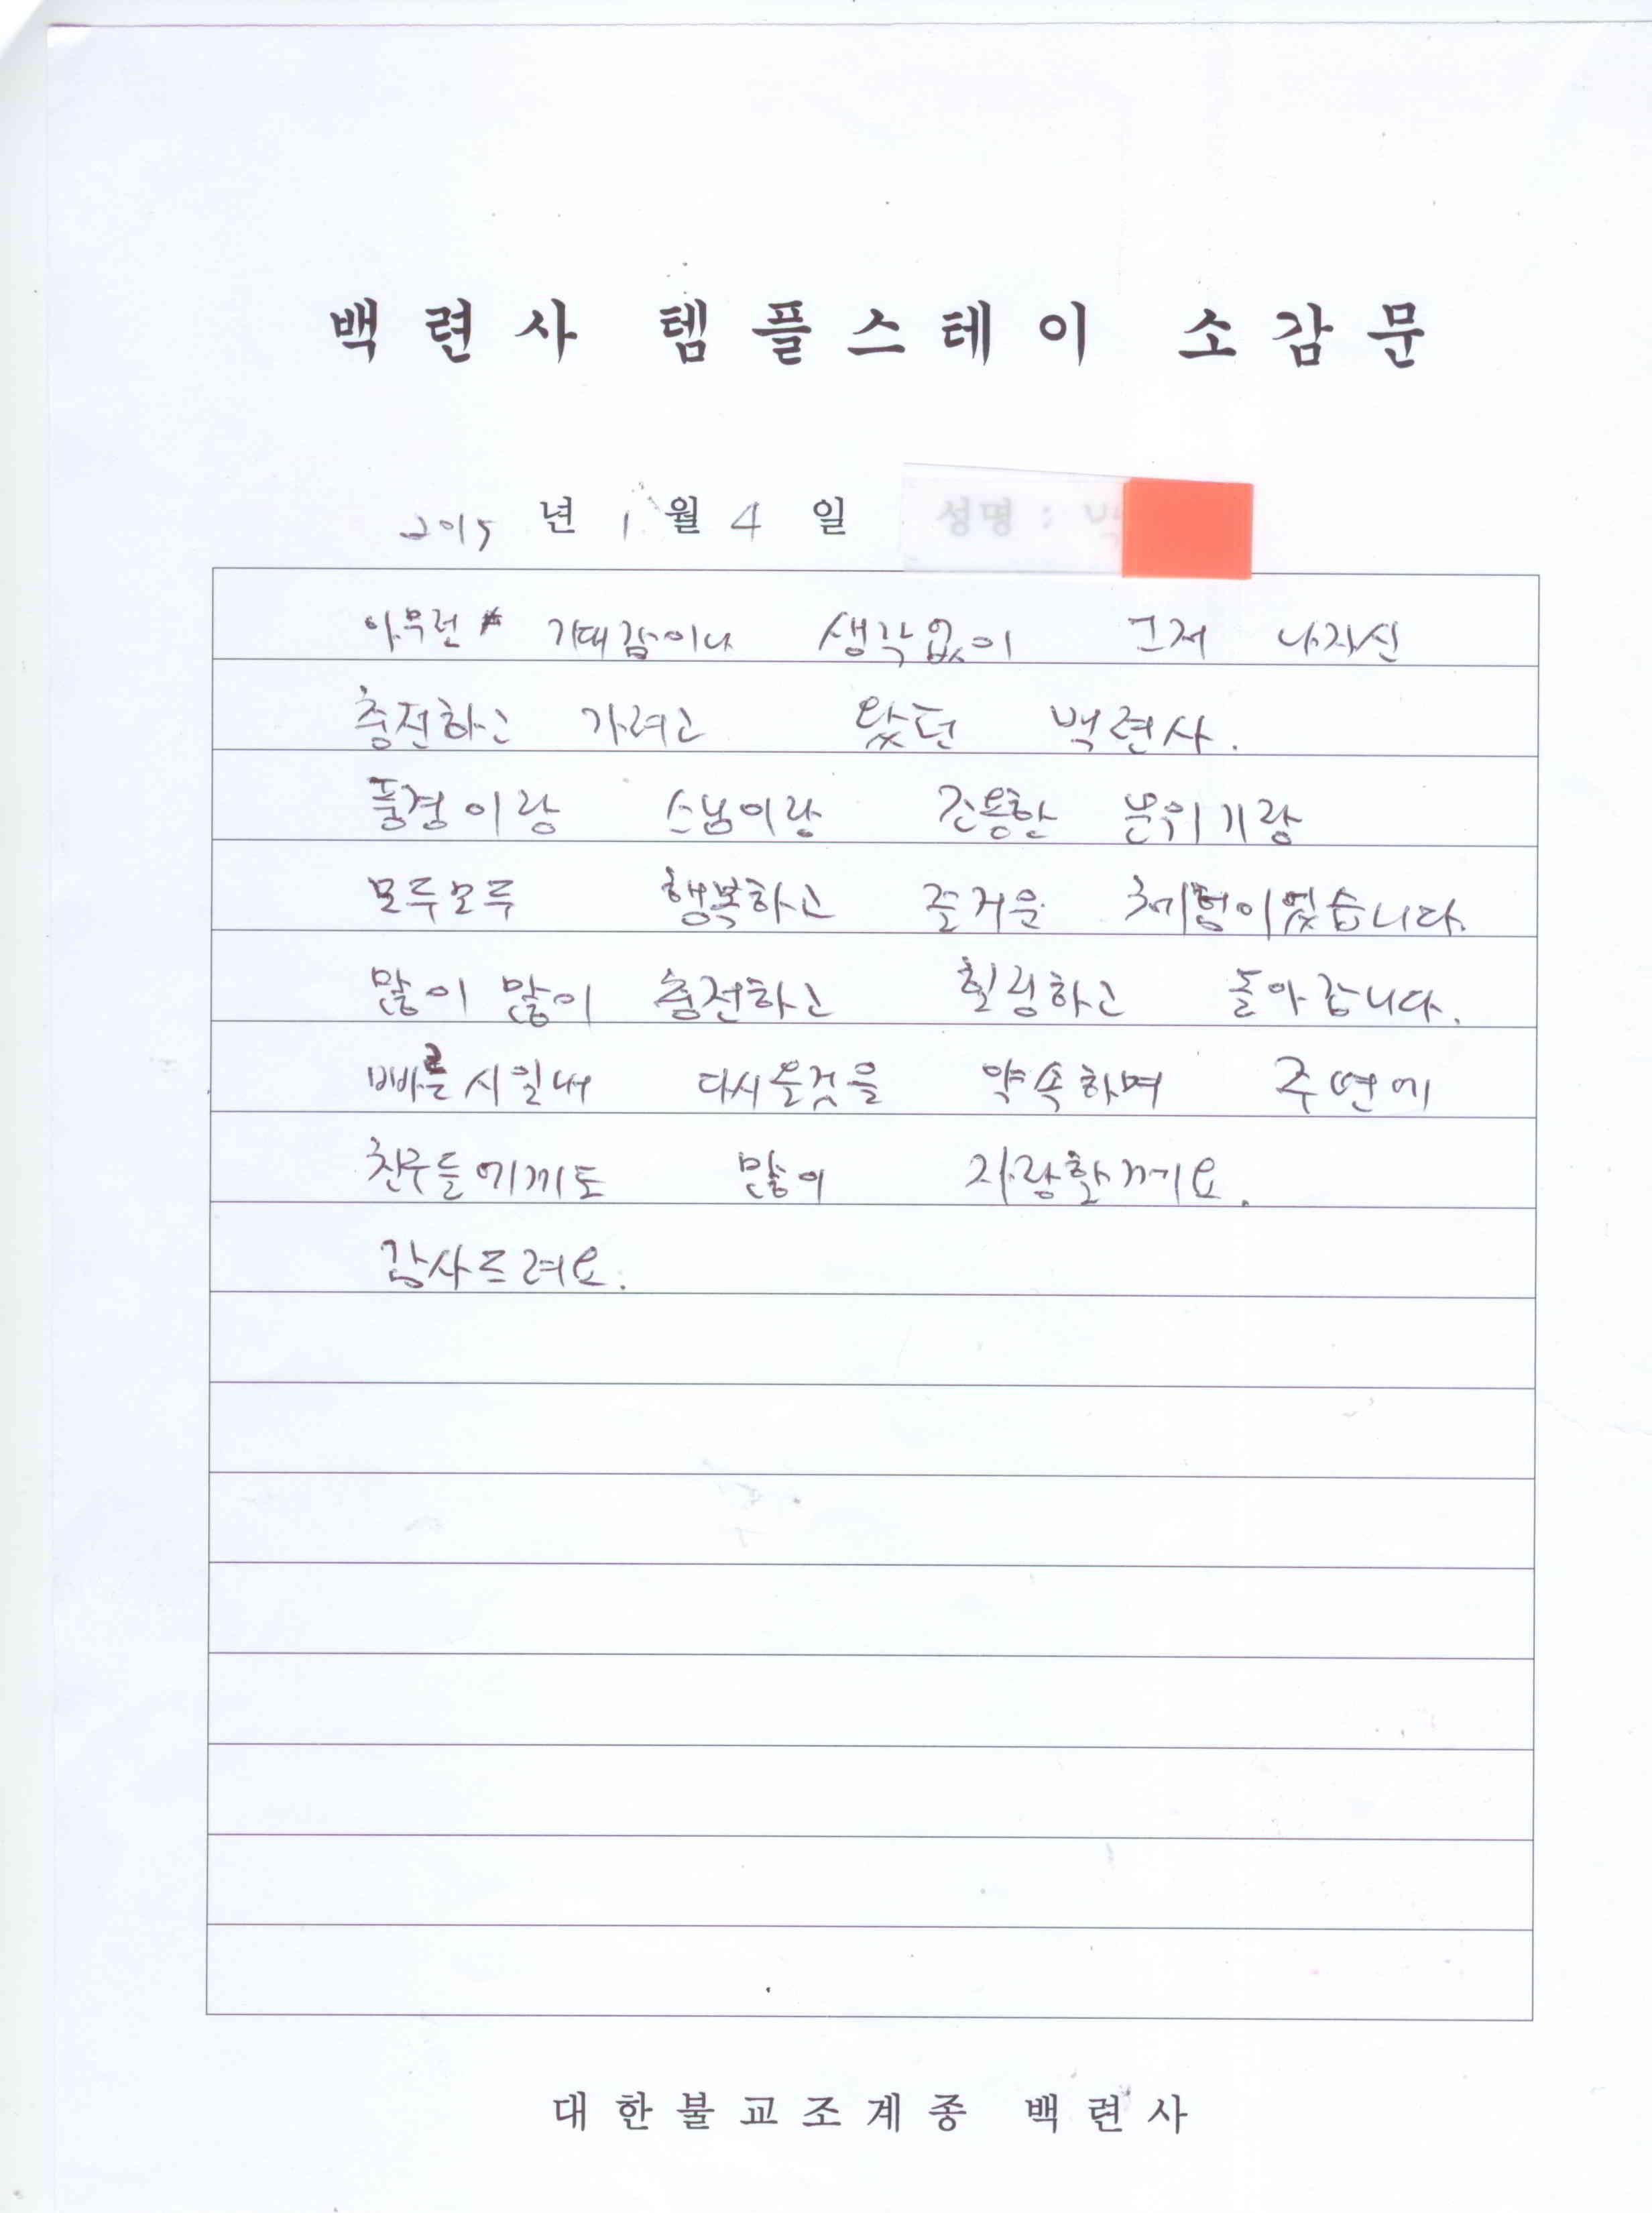 백련사 템플스테이 소감문
2015 년 1 월 4 일 성명 :
아무런 기대감이나 생각없이 그저 나자신
충전하고 가려고 왔던 백련사.
풍경이랑 스님이랑 조용한 분위기랑
모두모두 행복하고 즐거운 체험이었습니다.
많이 많이 충전하고 힐링하고 돌아갑니다.
빠른시일내 다시올것을 약속하며 주변에
친구들에게도 많이 자랑할께요.
감사드려요.
대한불교조계종 백련사